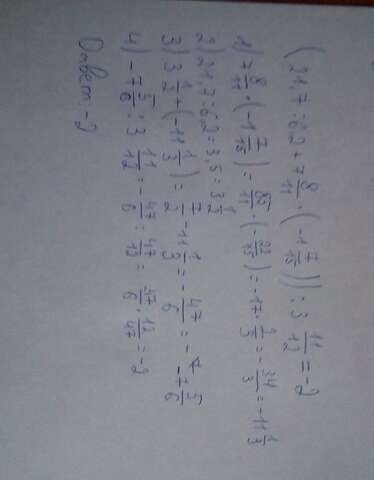 (21,7 : 6,2 + 7 8/11 · (-1 7/15)) : 3 11/12 = -2
1) 7 8/11 · (-1 7/15) = 85/11 · (-22/15) = -17 · 2/3 = -34/3 = -11 1/3
2) 21,7 : 6,2 = 3,5 = 3 1/2
3) 3 1/2 + (-11 1/3) = 7/2 - 11 1/3 = -47/6 = -7 5/6
4) -7 5/6 : 3 11/12 = -47/6 : 47/12 = 47/6 · 12/47 = -2
Ответ: -2